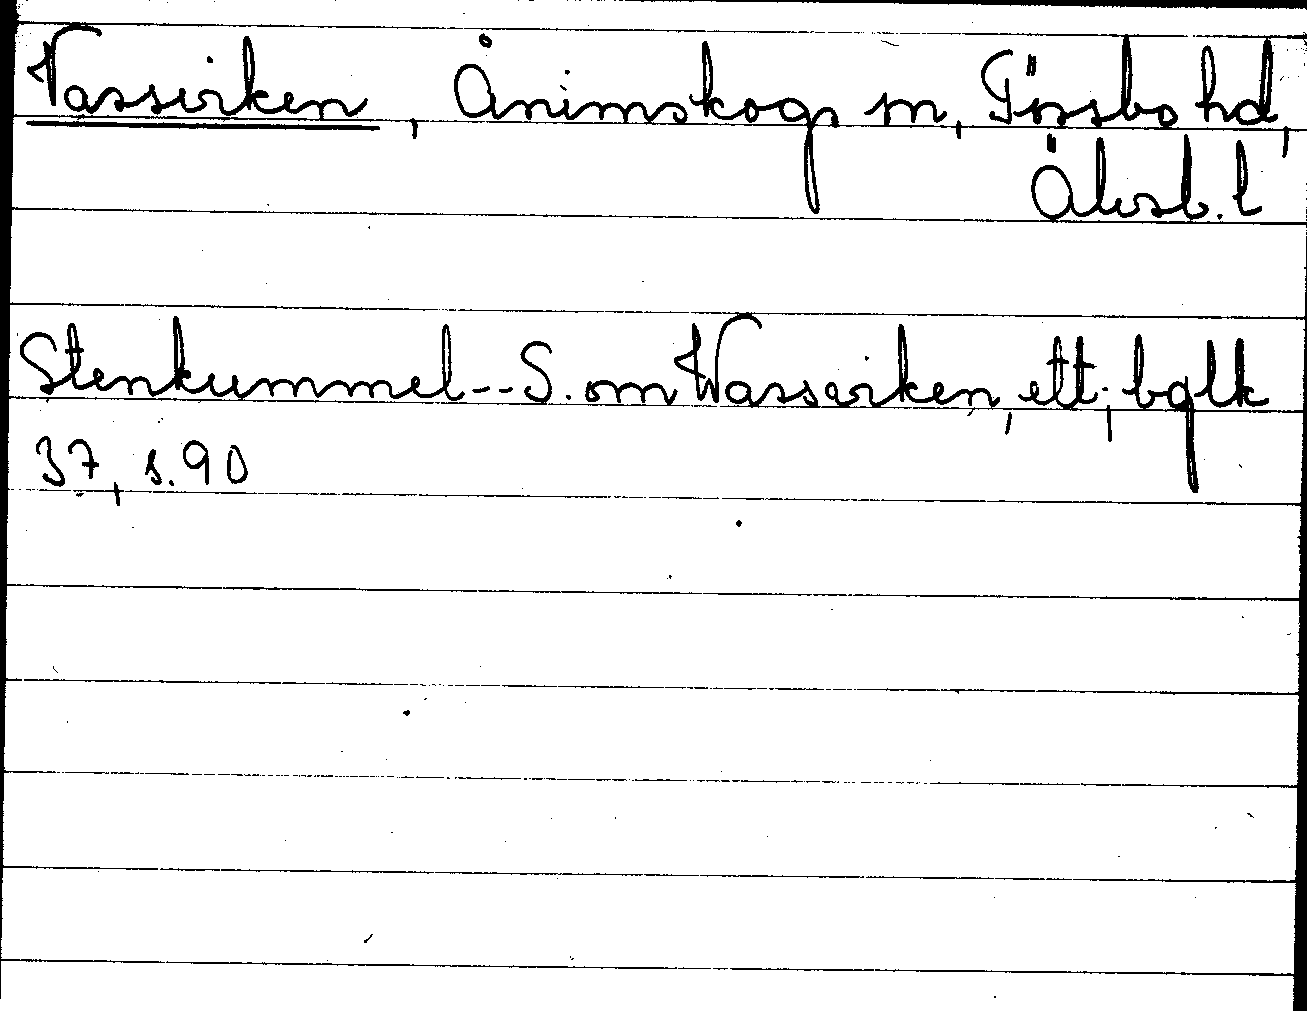 Vassviken, Ånimskogs sn, Tössbo hd,
Älvsb. l
Stenkummel--S. om Wassviken, ett; bglk
37, s. 90